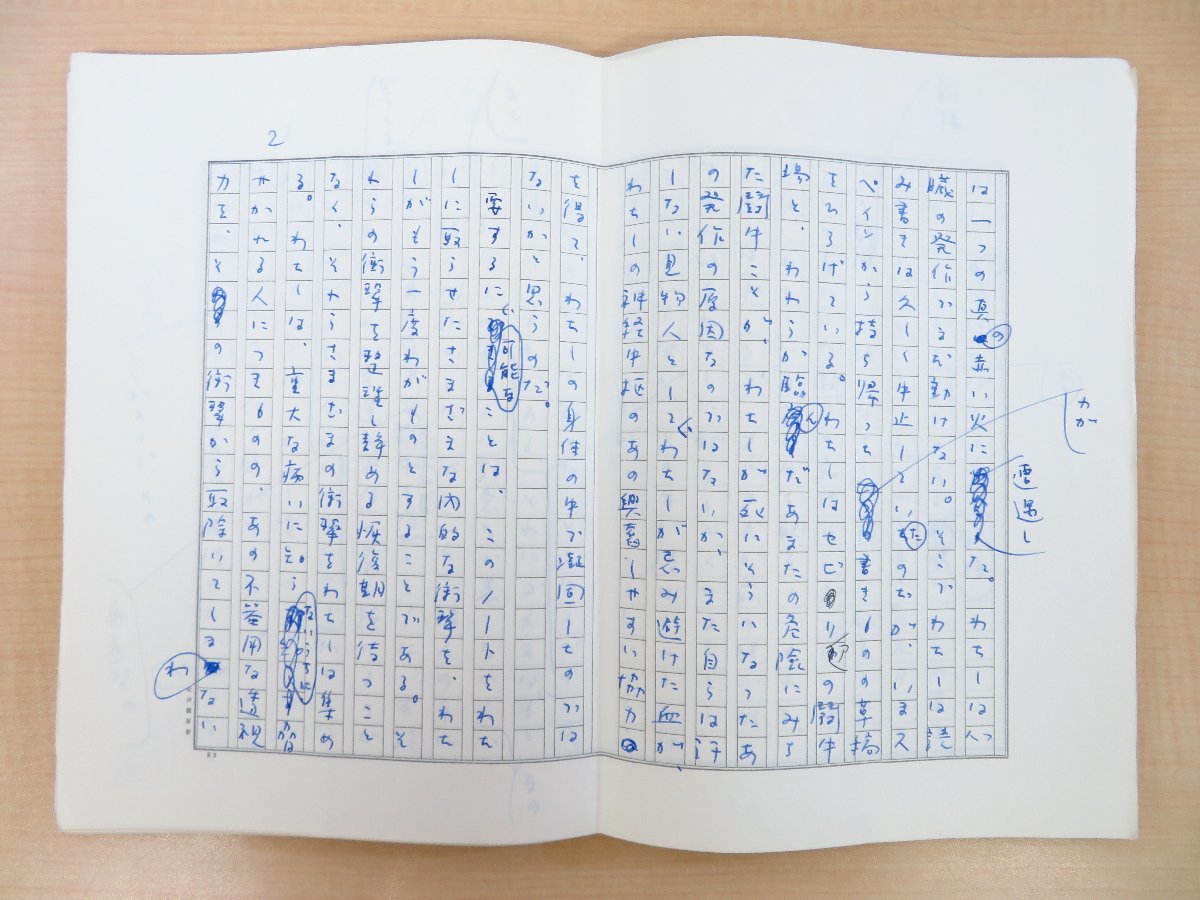 は一つの真の赤い火に遭遇した。わたしは心
臓の発作でまだ動けない。そこでわたしは読
み書きは久しく中止していたのだが、いまス
ペインから持ち帰ったかが書きしのの草稿
をひろげている。わたしはセビリの闘牛
場と、われらが臨んだあまたの危険にみち
た闘牛ことが、わたしが死にそうになったあ
の発作の原因なのではないか、また自らは汗
しない見物人としてわたしが忌み避けた血が、
わたしの神経中枢のあの興奮しやすい協力
を得て、わたしの身体の中で凝固したのでは
ないかと思うのだ。
要するに、可能なことは、このノートをわた
しに取らせたさまざまな内的な衝撃を、わた
しがもう一度わがものとすることである。そ
れらの衝撃を整理し静める恢復期を待つこと
なく、それらさまざまの衝撃をわたしは集め
る。わたしは、重大な病いに
せかれる人につきもの、あの不器用な透視
力を、その衝撃から取除いてしまわない
2